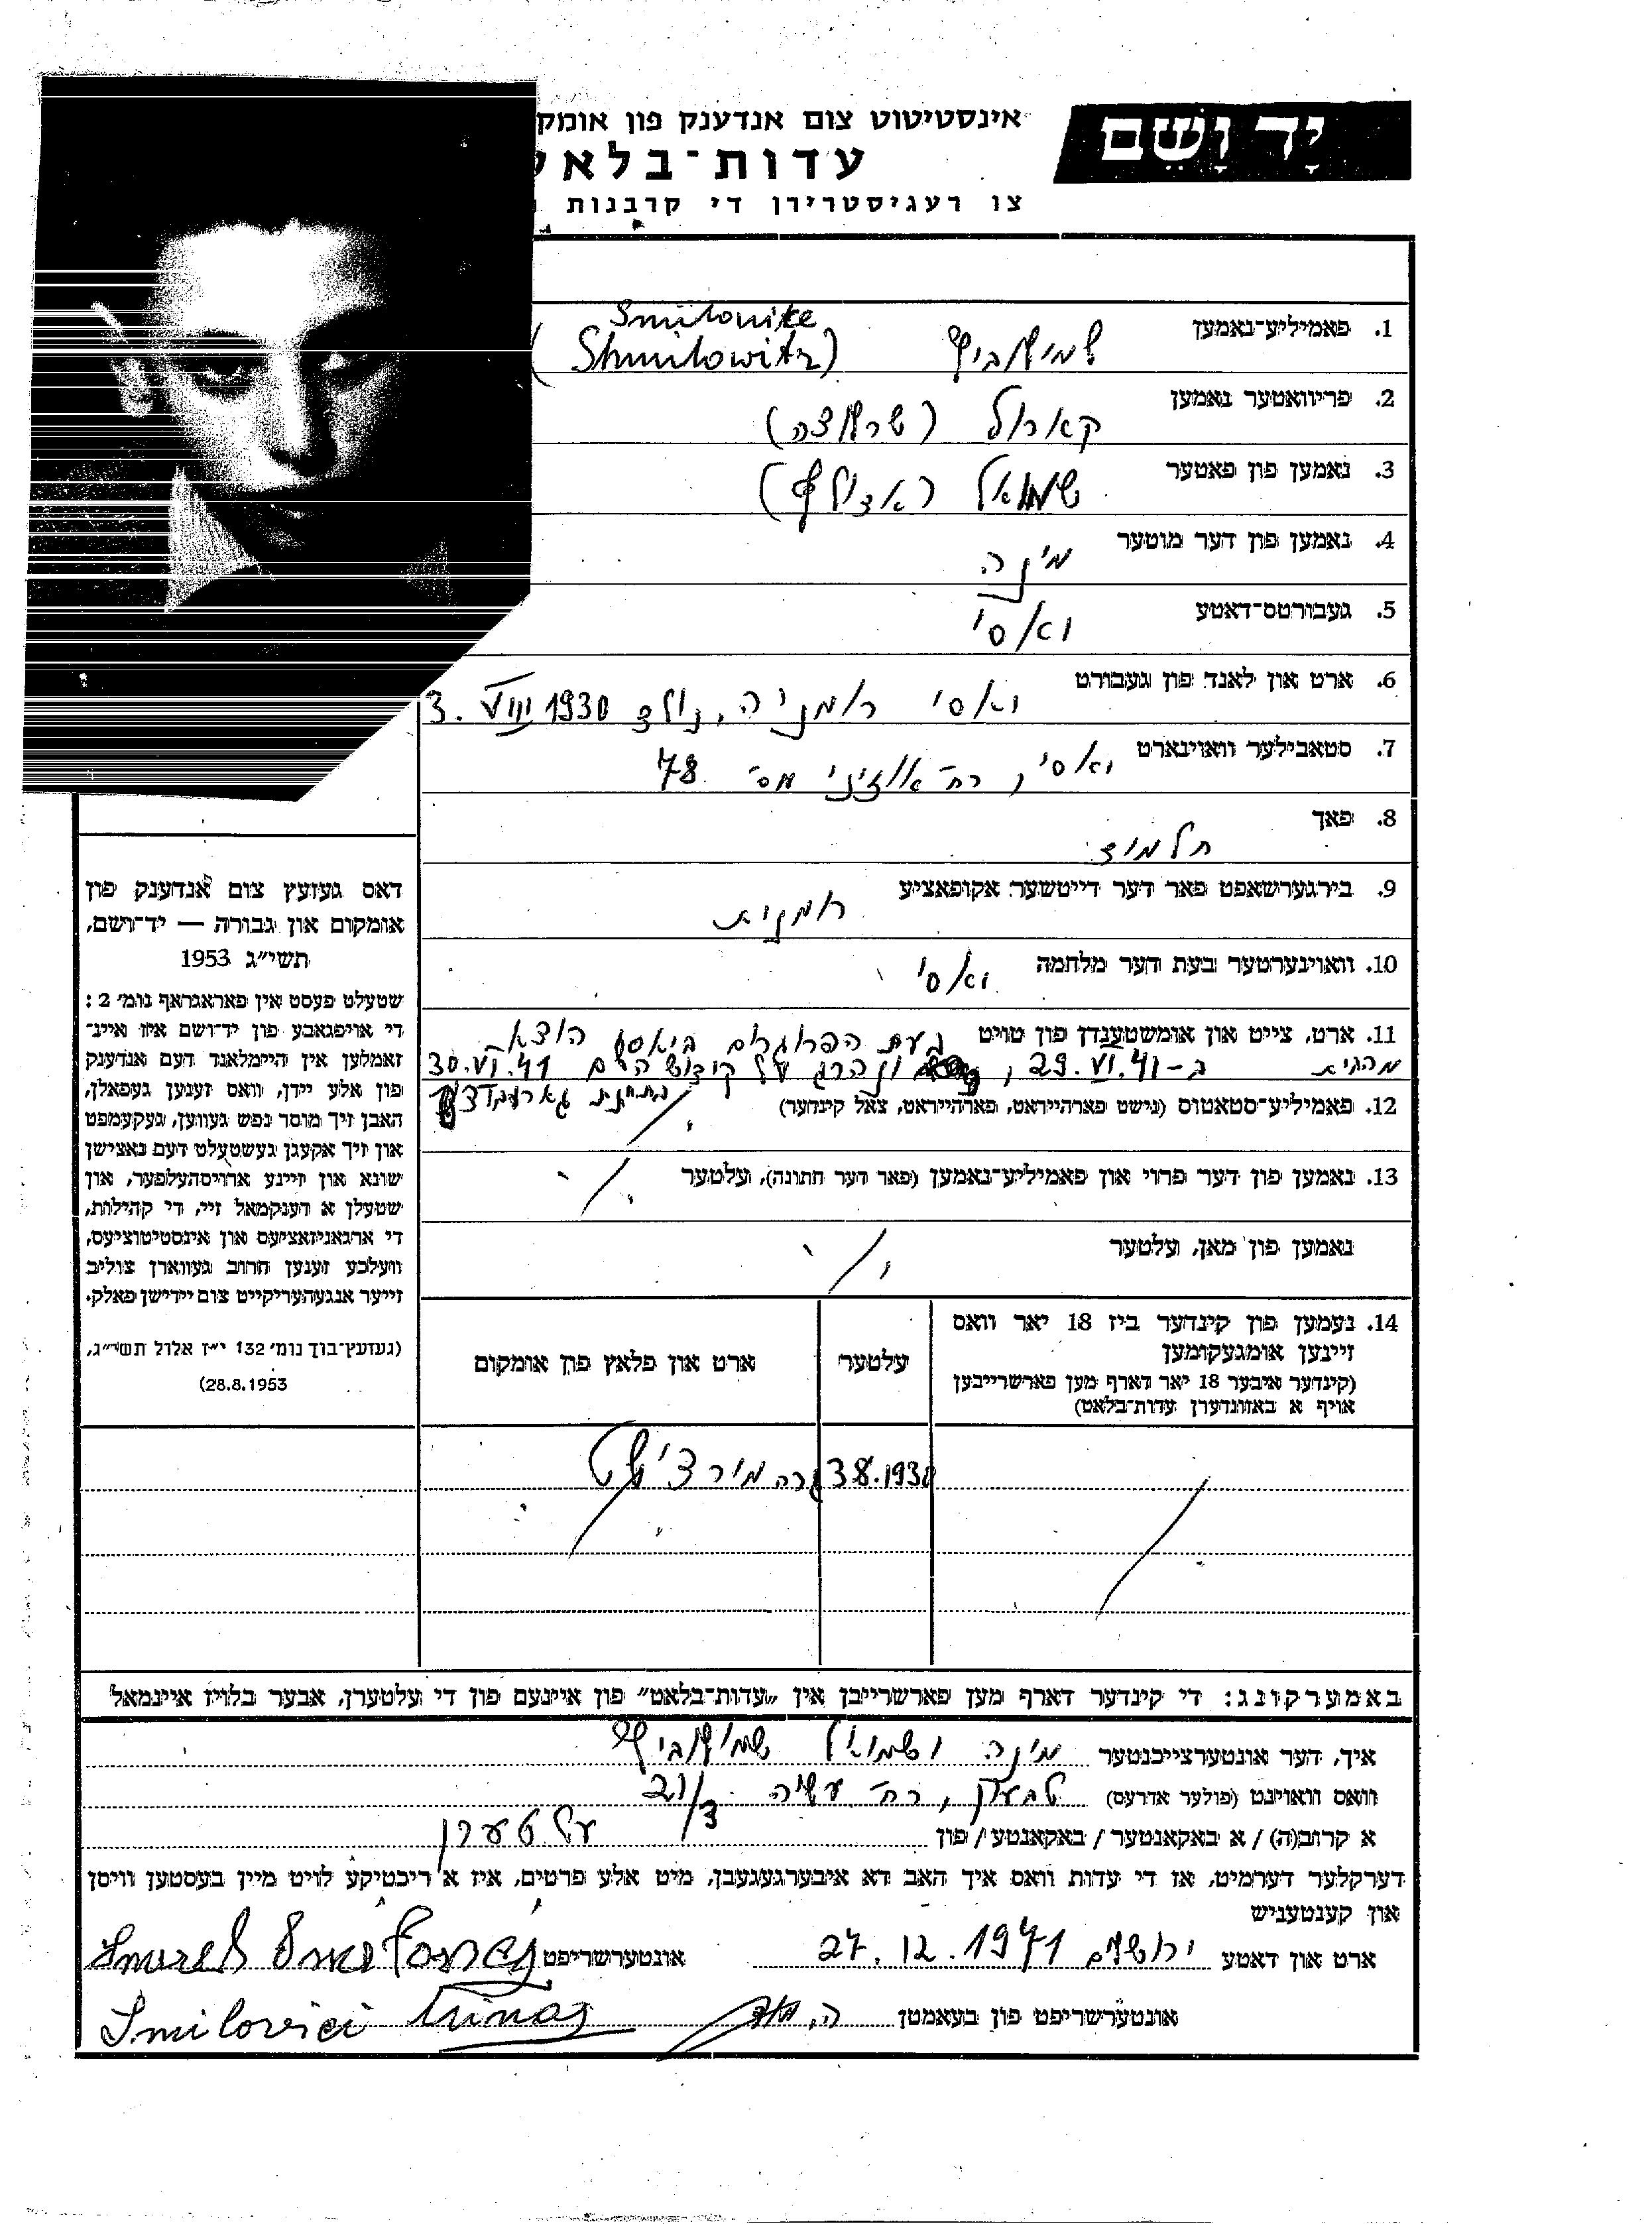 יָד וָשֵׁם
אינסטיטוט צום אנדענק פון
עדות-בלאט
צו רעגיסטרירן די קרבנות
1. פאמיליע-נאמען שמילוביץ (Shmilowitz)
2. פריוואטער נאמען קארול
3. נאמען פון פאטער שמואל (אדולף)
4. נאמען פון דער מוטער מינה
5. געבורטס-דאטע יאסי
6. ארט און לאנד פון געבורט יאסי רומניה, נולד 3. VIII 1930
7. סטאבילער וואוינארט יאסי, רח' מס' 78
8. פאך תלמיד
9. בירגערשאפט פאר דער דייטשער אקופאציע רומנית
10. וואוינערטער בעת דער מלחמה יאסי
11. ארט, צייט און אומשטענדן פון טויט בעת הפרוגרום ביאסי הוצא
מהבית ב-29.VI.41, ונהרג על קידוש השם 30.VI.41
12. פאמיליע-סטאטוס (נישט פארהייראט, פארהייראט, צאל קינדער)
13. נאמען פון דער פרוי און פאמיליע-נאמען (פאר דער חתונה), עלטער
נאמען פון מאן, עלטער
14. נעמען פון קינדער ביז 18 יאר וואס
זיינען אומגעקומען
(קינדער איבער 18 יאר דארף מען פארשרייבן
אויף א באזונדערן עדות-בלאט)
עלטער
ארט און פלאץ פון אומקום
3.8.1930
דאס געזעץ צום אנדענק פון
אומקום און גבורה — יד-ושם,
תשי"ג 1953
שטעלט פעסט אין פאראגראף נומ' 2:
די אויפגאבע פון יד-ושם איז איינ-
זאמלען אין היימלאנד דעם אנדענק
פון אלע יידן, וואס זענען געפאלן,
האבן זיך מוסר נפש געווען, געקעמפט
און זיך אקעגן געשטעלט דעם נאצישן
שונא און זיינע ארויסהעלפער, און
שטעלן א דענקמאל זיי, די קהילות,
די ארגאניזאציעס און אינסטיטוציעס,
וועלכע זענען חרוב געווארן צוליב
זייער אנגעהעריקייט צום יידישן פאלק.
(געזעץ-בוך נומ' 132 י"ז אלול תשי"ג,
28.8.1953)
באמערקונג: די קינדער דארף מען פארשרייבן אין "עדות-בלאט" פון איינעם פון די עלטערן, אבער בלויז איינמאל
איך, דער אונטערצייכנטער מינה ושמואל שמילוביץ
וואס וואוינט (פולער אדרעס) טבעון, רח' 21/3
א קרוב(ה) / א באקאנטער / באקאנטע / פון עלטערן
דערקלער דערמיט, אז די עדות וואס איך האב דא איבערגעגעבן, מיט אלע פרטים, איז א ריכטיקע לויט מיין בעסטען וויסן
און קענטעניש
ארט און דאטע ירושלים 27.12.1971 אונטערשריפט
אונטערשריפט פון בעאמטן Smilovici